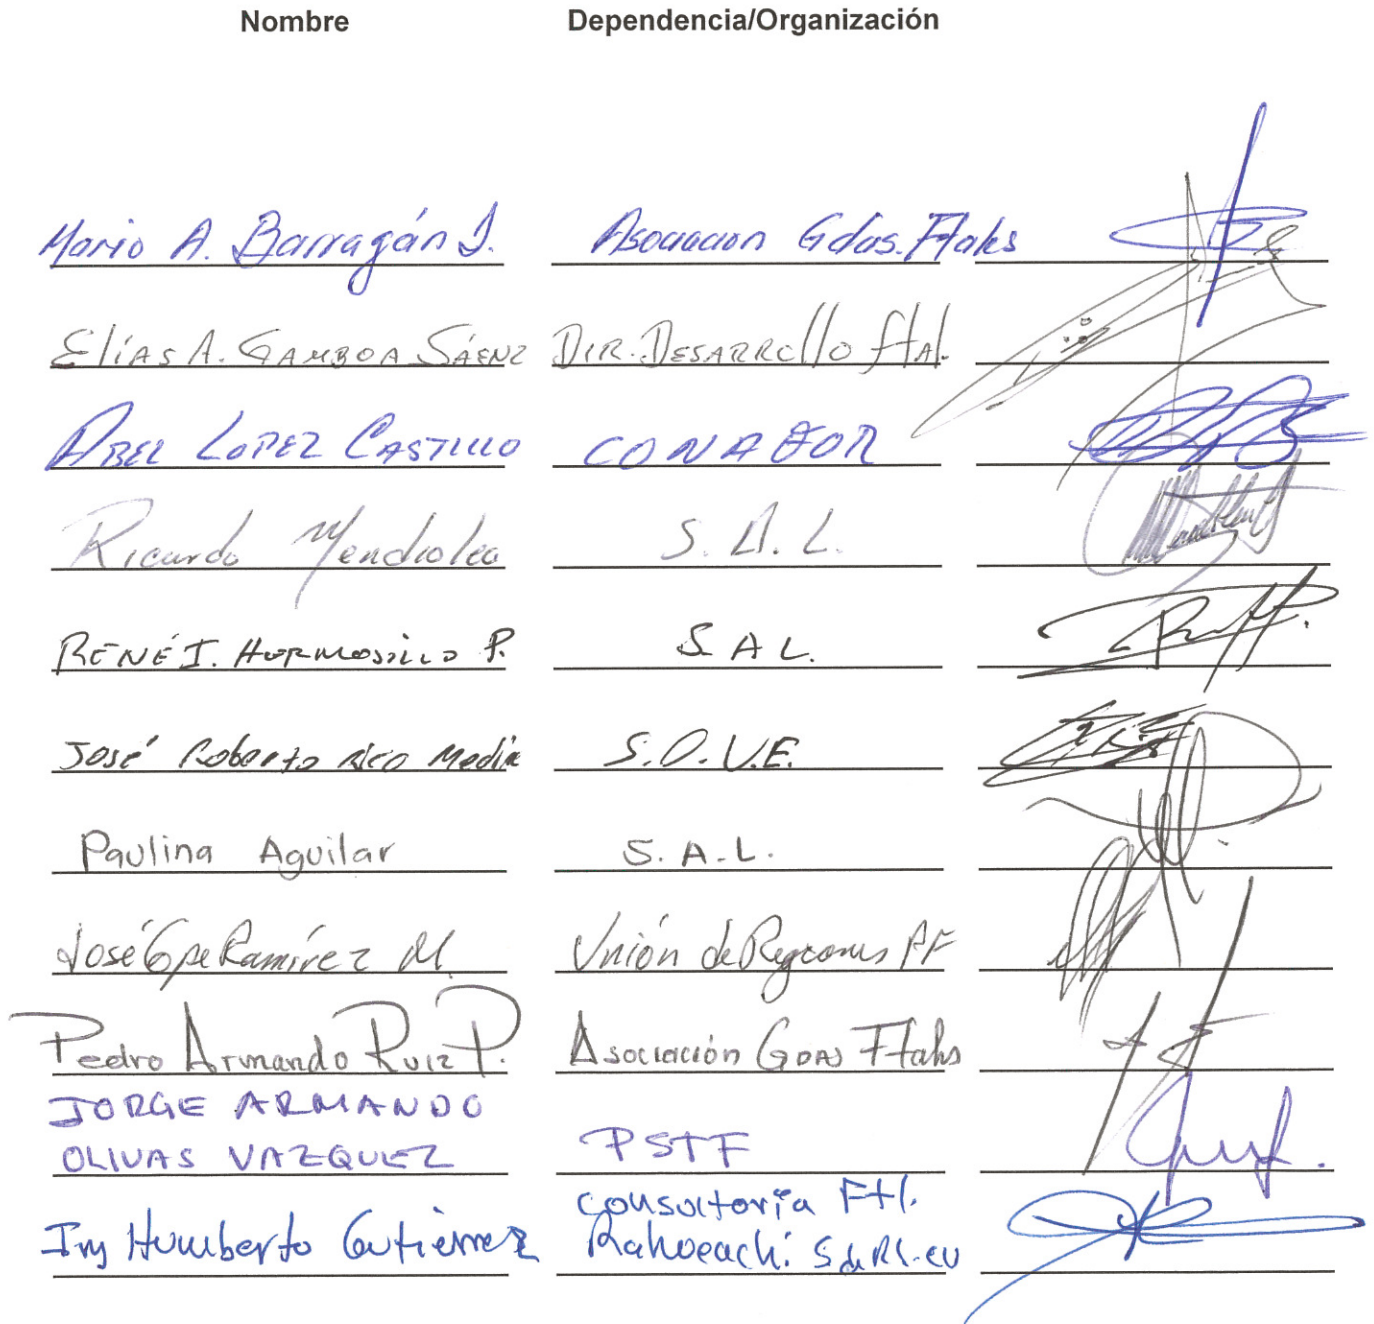 Nombre Dependencia/Organización
Mario A. Barragán J. Asociacion Gdas. Ftales
Elías A. GAMBOA SÁENZ DIR. DESARROllO ftAl.
ABEL LOPEZ CASTILLO CONAFOR
Ricardo Mendiolea S. A. L.
RENÉ I. HERMOSILLO P. S A L.
José Roberto Rico Medin S.D.V.E.
Paulina Aguilar S. A. L.
José Gpe Ramírez M. Unión de Regiones PF
Pedro Armando Ruiz P. Asociación GDAS Ftales
JORGE ARMANDO
OLIVAS VAZQUEZ PSTF
consultoria Ftl.
Ing Humberto Gutiérrez S de RL. CV